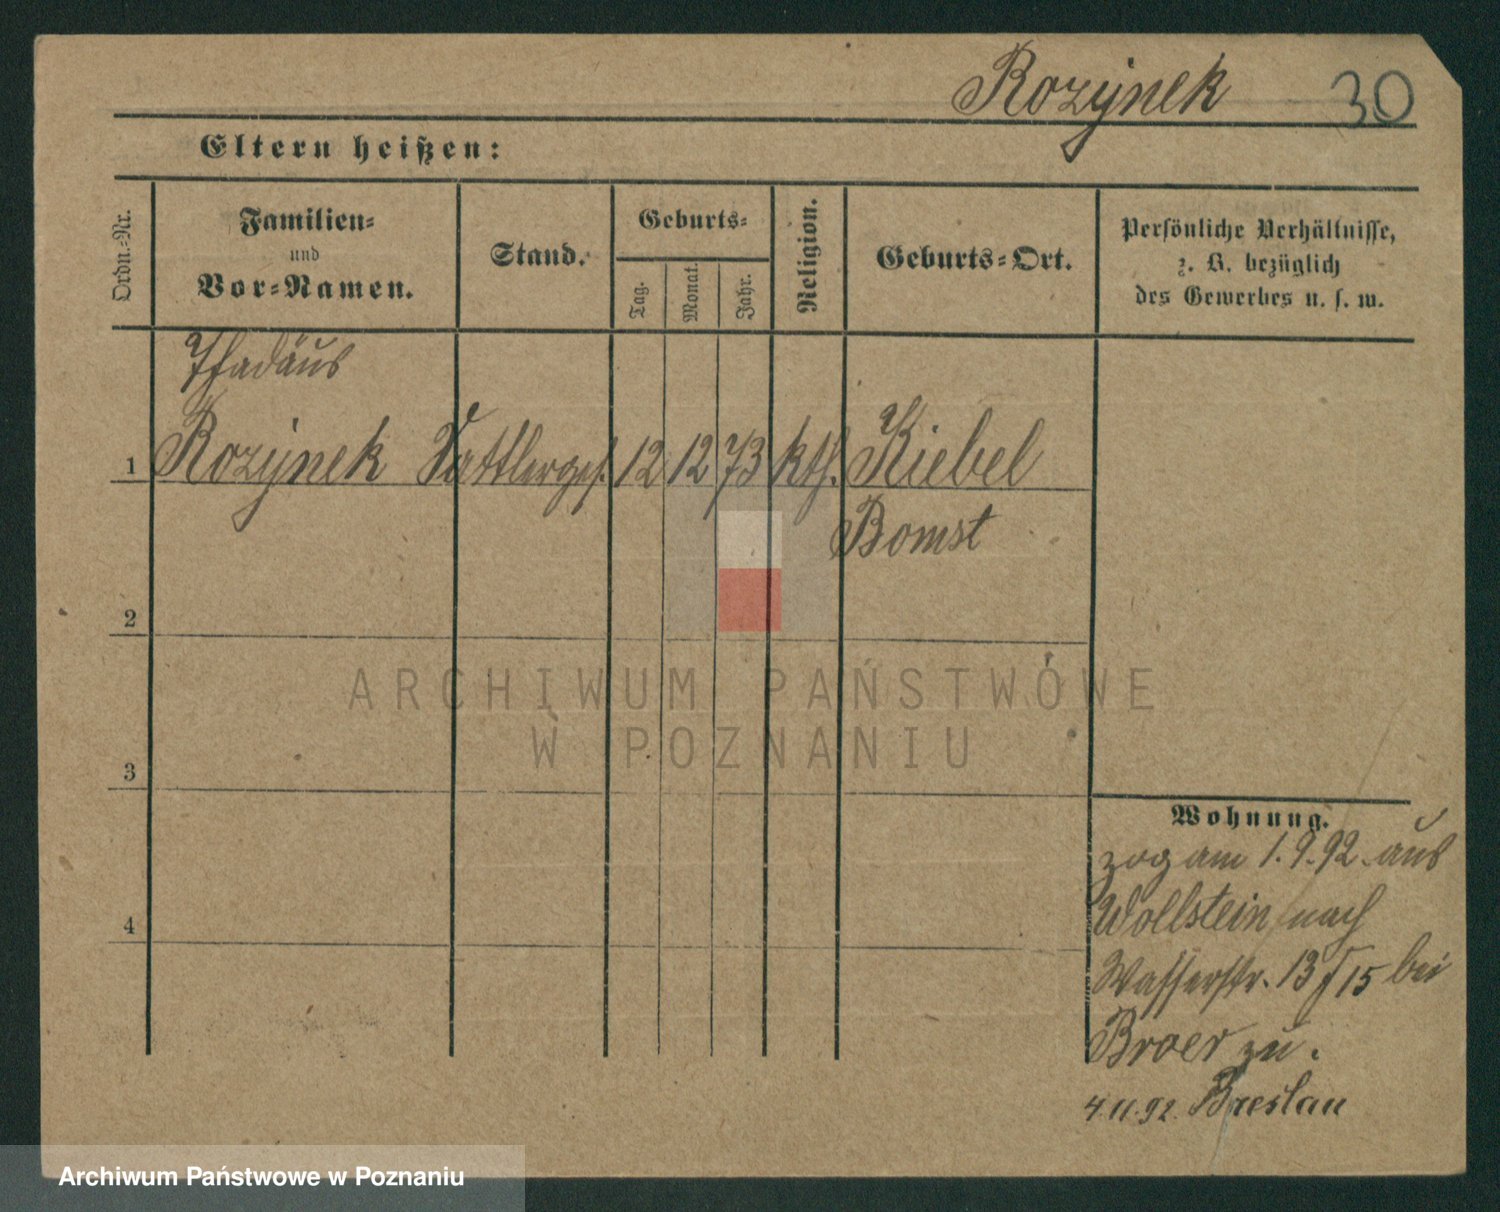 Rozynek 30
Eltern heißen:
Ordn.-Nr.
Familien-
und
Vor-Namen.
Stand.
Geburts-
Tag.
Monat.
Jahr.
Religion.
Geburts-Ort.
Persönliche Verhältnisse,
z. B. bezüglich
des Gewerbes u. s. w.
Thadäus
1 Rozynek Sattlerges. 12 12 73 kth. Kiebel
Bomst
2
3
4
Wohnung.
zog am 1.9.92. aus
Wollstein nach
Wasserstr. 13/15 bei
Broer zu.
4.11.92. Breslau
ARCHIWUM PAŃSTWOWE
W POZNANIU
Archiwum Państwowe w Poznaniu